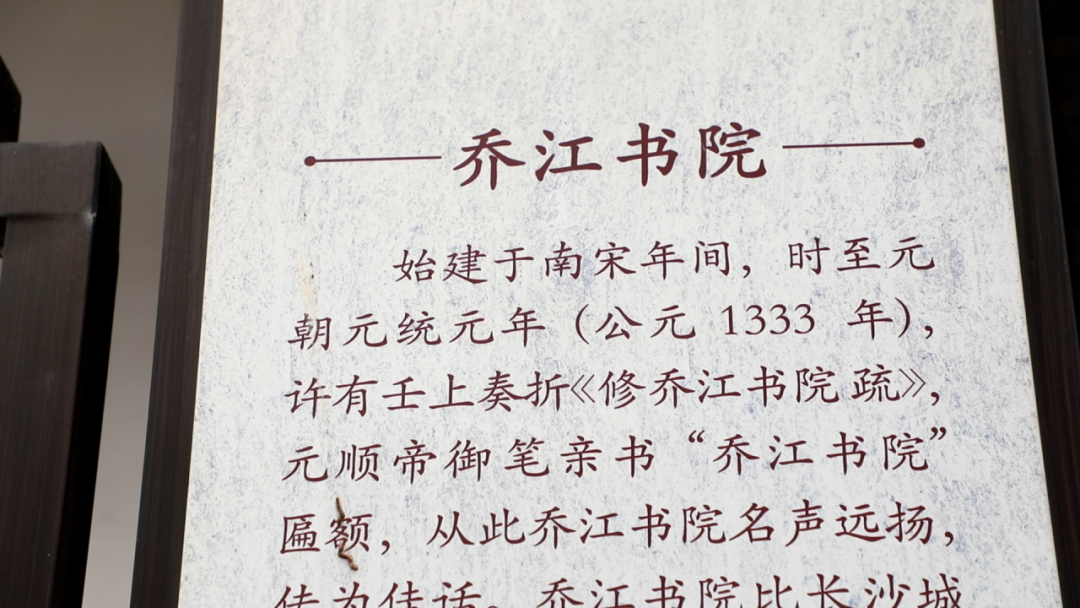 乔江书院
始建于南宋年间，时至元
朝元统元年（公元 1333 年），
许有壬上奏折《修乔江书院疏》，
元顺帝御笔亲书“乔江书院”
匾额，从此乔江书院名声远扬，
传为佳话。乔江书院比长沙城